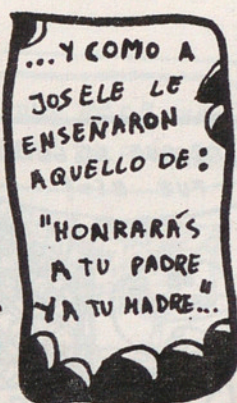 ...Y COMO A
JOSELE LE
ENSEÑARON
AQUELLO DE:
"HONRARÁS
A TU PADRE
Y A TU MADRE"...